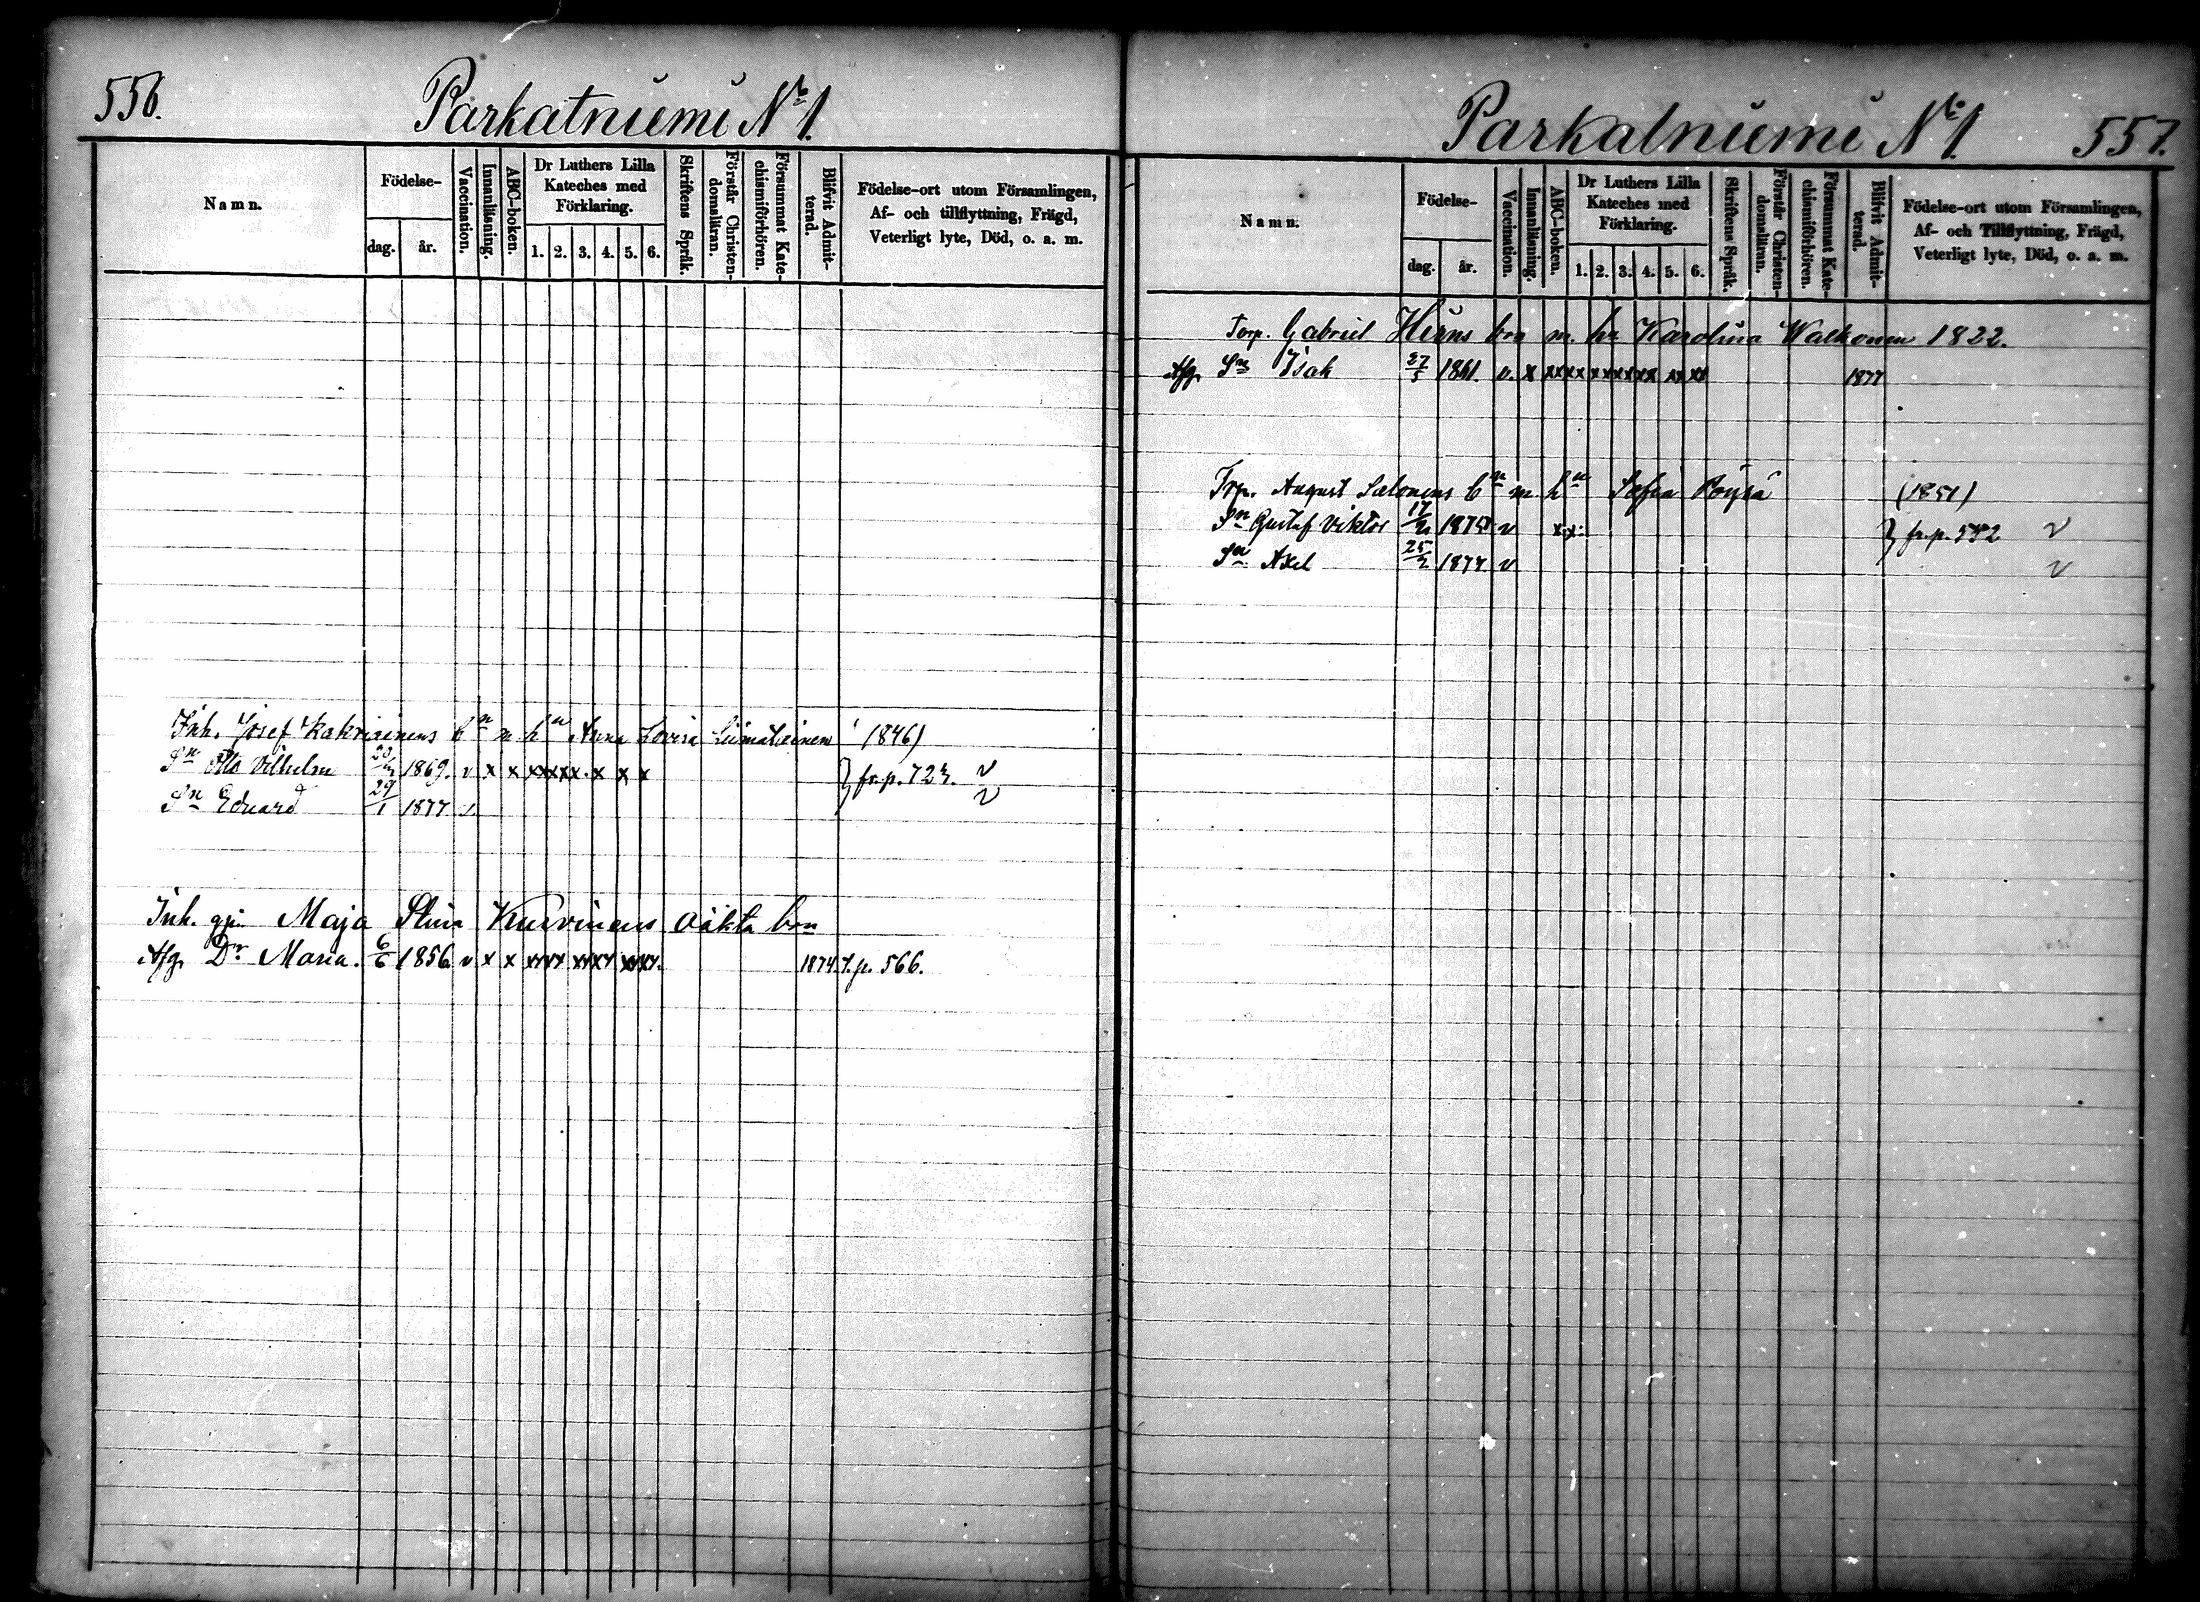 556.
Parkatniemi No 1.
Namn.
Födelse-
dag.
år.
Vaccination.
Innanläsning.
ABC-boken.
Dr Luthers Lilla
Kateches med
Förklaring.
1. 2. 3. 4. 5. 6.
Skriftens Språk.
Förstår Christen-
domsläran.
Försummat Kate-
chismiförhören.
Blifvit Admit-
terad.
Födelse-ort utom Församlingen,
Af- och tillflyttning, Frägd,
Veterligt lyte, Död, o. a. m.
Inh. Josef Kakriainens bn m. hn Anna Lovisa Liimatainen (1846)
Sn Otto Vilhelm 1869. v x x xx xx x. x x x } fr. p. 723. v
Sn Eduard 29/1 1877 v. v
Inh. Maja Stina Kurvinens oäkta brn
Afg. Dr Maria. 6/6 1856. v x x xx xx xx xx xx xx. 1874. t. p. 566.
Parkatniemi No 1.
557.
Namn.
Födelse-
dag.
år.
Vaccination.
Innanläsning.
ABC-boken.
Dr Luthers Lilla
Kateches med
Förklaring.
1. 2. 3. 4. 5. 6.
Skriftens Språk.
Förstår Christen-
domsläran.
Försummat Kate-
chismiförhören.
Blifvit Admit-
terad.
Födelse-ort utom Församlingen,
Af- och Tillflyttning, Frägd,
Veterligt lyte, Död, o. a. m.
Torp. Gabriel Hirns brn m. hu Karolina Walkonen 1822.
Afg. Sn Isak 27/5 1861. v. x xx xx xx xx xx xx xx 1877
Trp. August Salonens bn m. hn Sofia Pöysä (1851)
Sn Gustaf Viktor 1875 v x.x. } fr. p. 532 v
Sn Axel 1877 v v